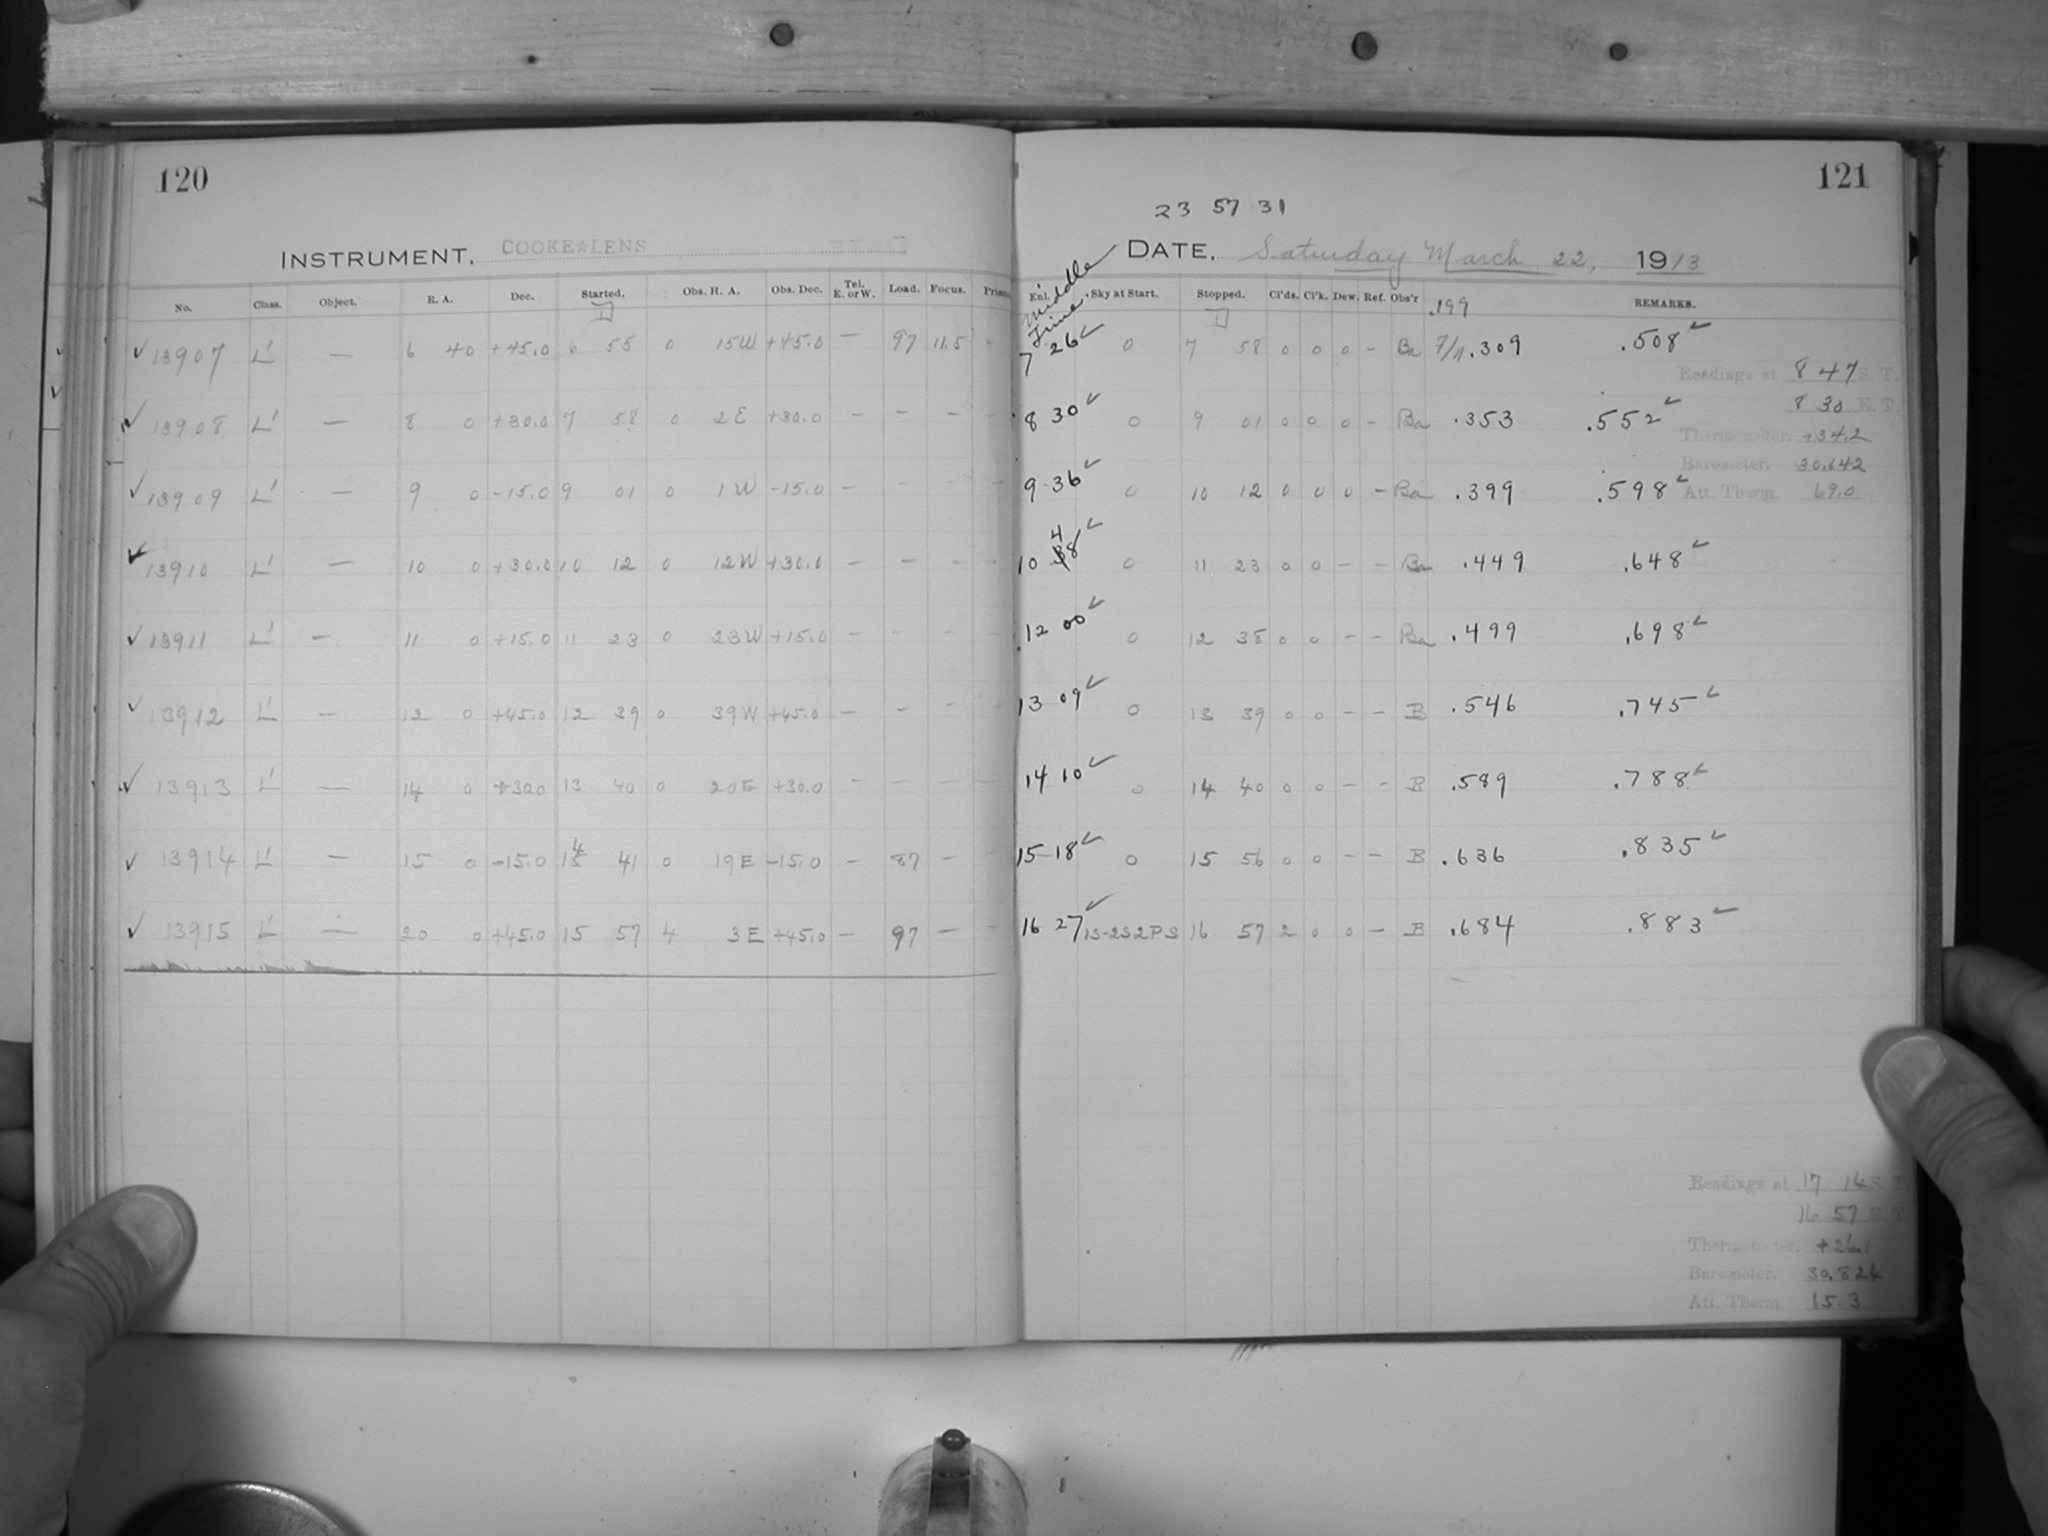 120
121
23 57 31
INSTRUMENT. COOKE☆LENS
DATE. Saturday March 22, 1913
No. Class. Object. R. A. Dec. Started. Obs. H. A. Obs. Dec. Tel. E. or W. Load. Focus. Prism
Enl. Middle Time. Sky at Start. Stopped. Cl'ds. Cl'k. Dew. Ref. Obs'r .199 REMARKS.
✓ 13907 L' — 6 40 +45.0 6 55 0 15W +45.0 — 97 11.5 - 7 26 ✓ 0 7 58 0 0 0 - Ba .309 .508 ✓
Readings at 8 47 S. T.
8 30 E. T.
✓ 13908 L' — 8 0 +30.0 7 58 0 2E +30.0 — — — — 8 30 ✓ 0 9 01 0 0 0 - Ba .353 .552 ✓
Thermometer. +34.2
Barometer. 30.642
✓ 13909 L' — 9 0 -15.0 9 01 0 1W -15.0 — — — — 9-36 ✓ 0 10 12 0 0 0 - Ba .399 .598 ✓
Att. Therm. 69.0
✓ 13910 L' — 10 0 +30.0 10 12 0 12W +30.0 — — — — 10 48 ✓ 0 11 23 0 0 — - Ba .449 .648 ✓
✓ 13911 L' — 11 0 +15.0 11 23 0 23W +15.0 — — — — 12 00 ✓ 0 12 38 0 0 — — Ba .499 .698 ✓
✓ 13912 L' — 12 0 +45.0 12 39 0 39W +45.0 — — — — 13 09 ✓ 0 13 39 0 0 — — B .546 .745 ✓
✓ 13913 L' — 14 0 +30.0 13 40 0 20E +30.0 — — — — 14 10 ✓ 0 14 40 0 0 — - B .589 .788 ✓
✓ 13914 L' — 15 0 -15.0 14 41 0 19E -15.0 — 87 — — 15-18 ✓ 0 15 56 0 0 — — B .636 .835 ✓
✓ 13915 L' — 20 0 +45.0 15 57 4 3E +45.0 — 97 — — 16 27 ✓ 15-2S2PS 16 57 2 0 0 — B .684 .883 ✓
Readings at 17 14 S. T.
16 57 E. T.
Thermometer. +26.1
Barometer. 30.824
Att. Therm. 65.3